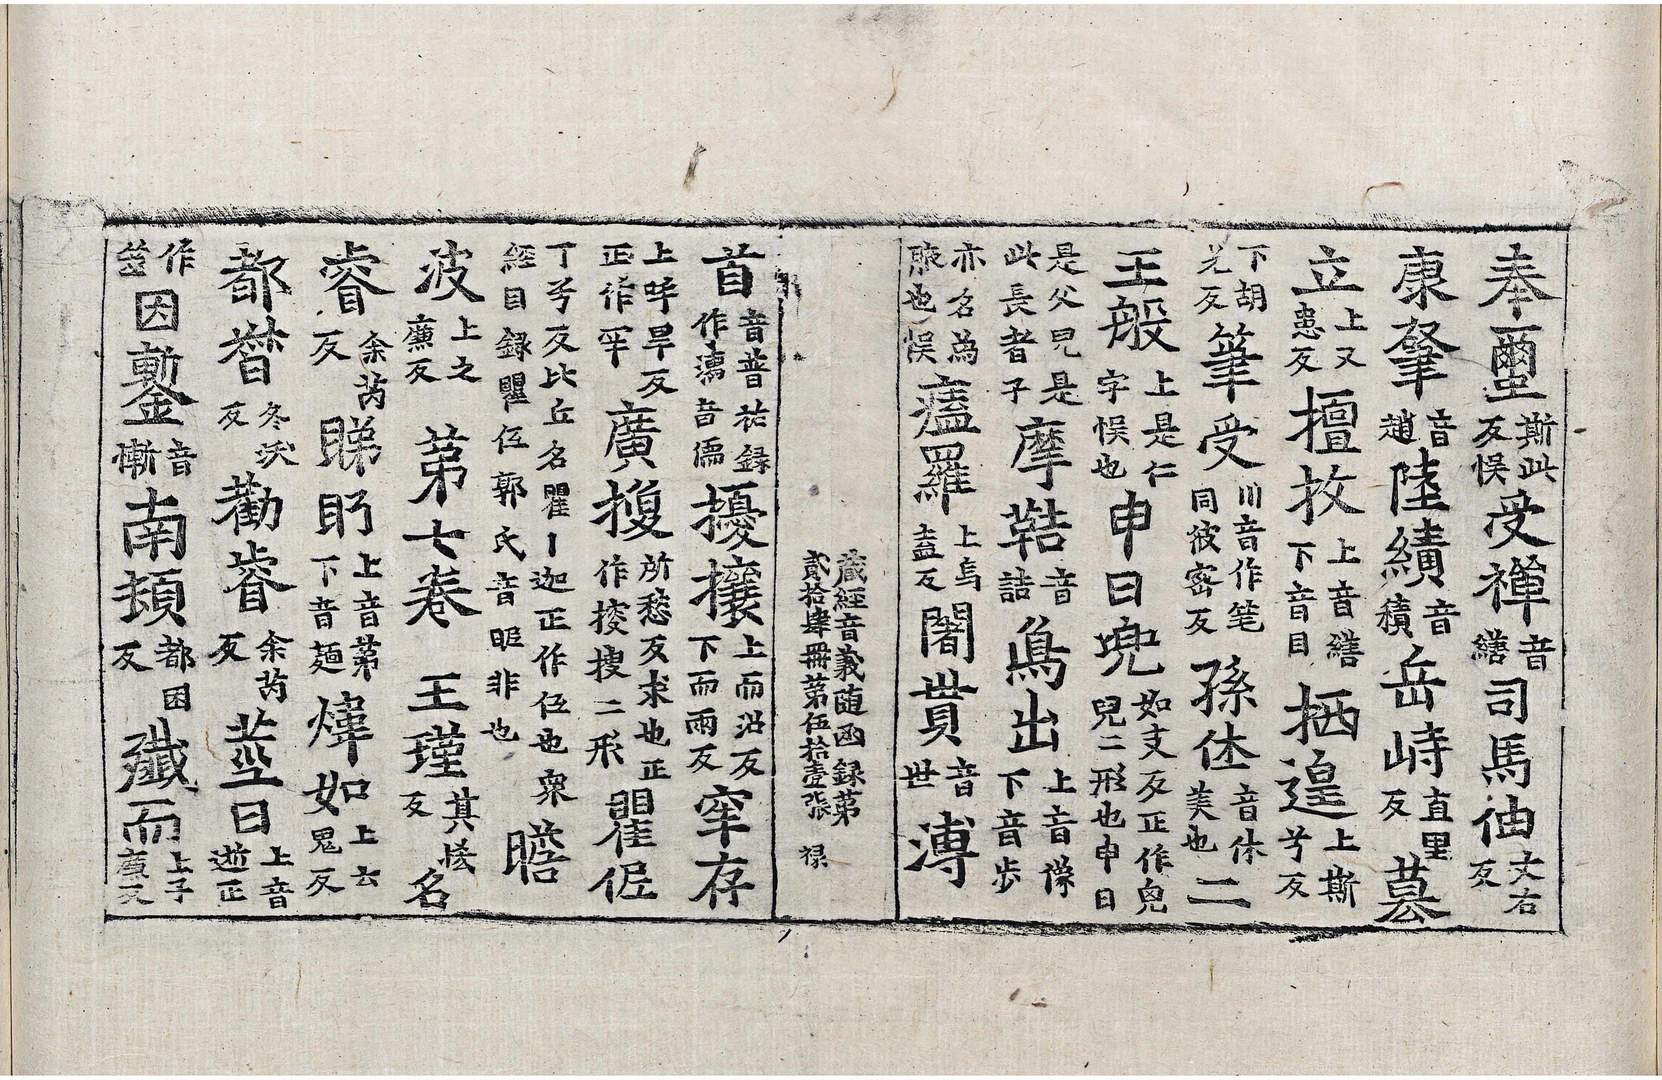 奉璽斯此反悮受禪音繕司馬㑀丈右反
康肇音趙陸績音積岳峙直里反墓
立上又患反擅牧上音繕下音目栖遑上斯兮反
下胡光反筆受川音作笔同彼密反孫㑘音休美也二
王般上是仁字悮也申日兜如支反正作兒兒二形也申日
是父皃是此長者子摩鞊音詰鳥出上音像下音步
亦名為腋也悮㿈羅上烏盍反闍貰音世溥
藏經音義随函録第貳拾肆冊第伍拾壹張 禄
首音普祐録作灀音儒擾攘上而沼反下而兩反罕存
上呼旱反正作罕廣搜所愁反求也正作挍捜二形瞿㑛
丁兮反比丘名瞿丨迦正作伍也衆經目録瞿伍郭氏音眤非也瞻
波上之廉反 第七卷 王瑾其悋反 名
睿余芮反睇眄上音第下音麺煒如上云鬼反
都督冬沃反勸睿余芮反莖曰上音逝正
作筮因鏨音慚南頓都困反殲而上子廉反